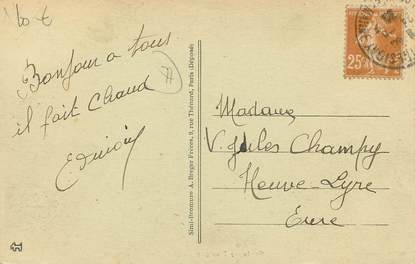 10 €
Bonjour a tous
il fait Chaud
Simili-Bromure A. Breger Frères, 9, rue Thénard, Paris (Déposé)
25c
Madame
V. Jules Champy
Neuve-Lyre
Eure